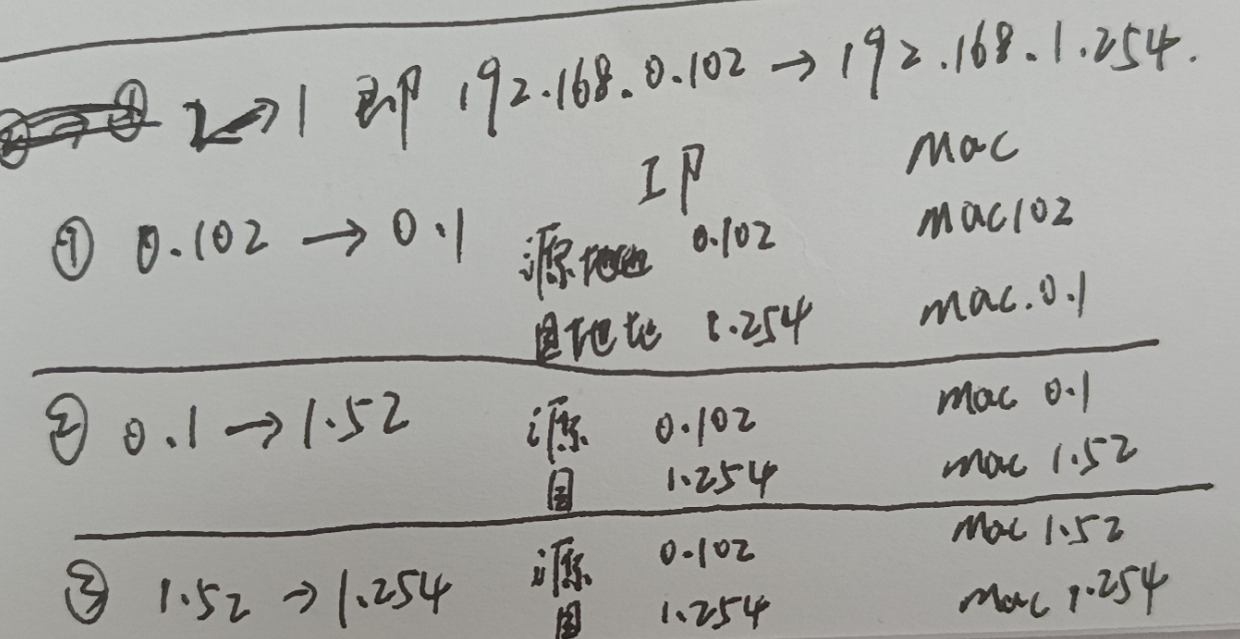 2→1 即 192.168.0.102 → 192.168.1.254.
IP mac
① 0.102 → 0.1 源地址 0.102 mac102
目地址 1.254 mac.0.1
② 0.1 → 1.52 源 0.102 mac 0.1
目 1.254 mac 1.52
③ 1.52 → 1.254 源 0.102 mac 1.52
目 1.254 mac 1.254